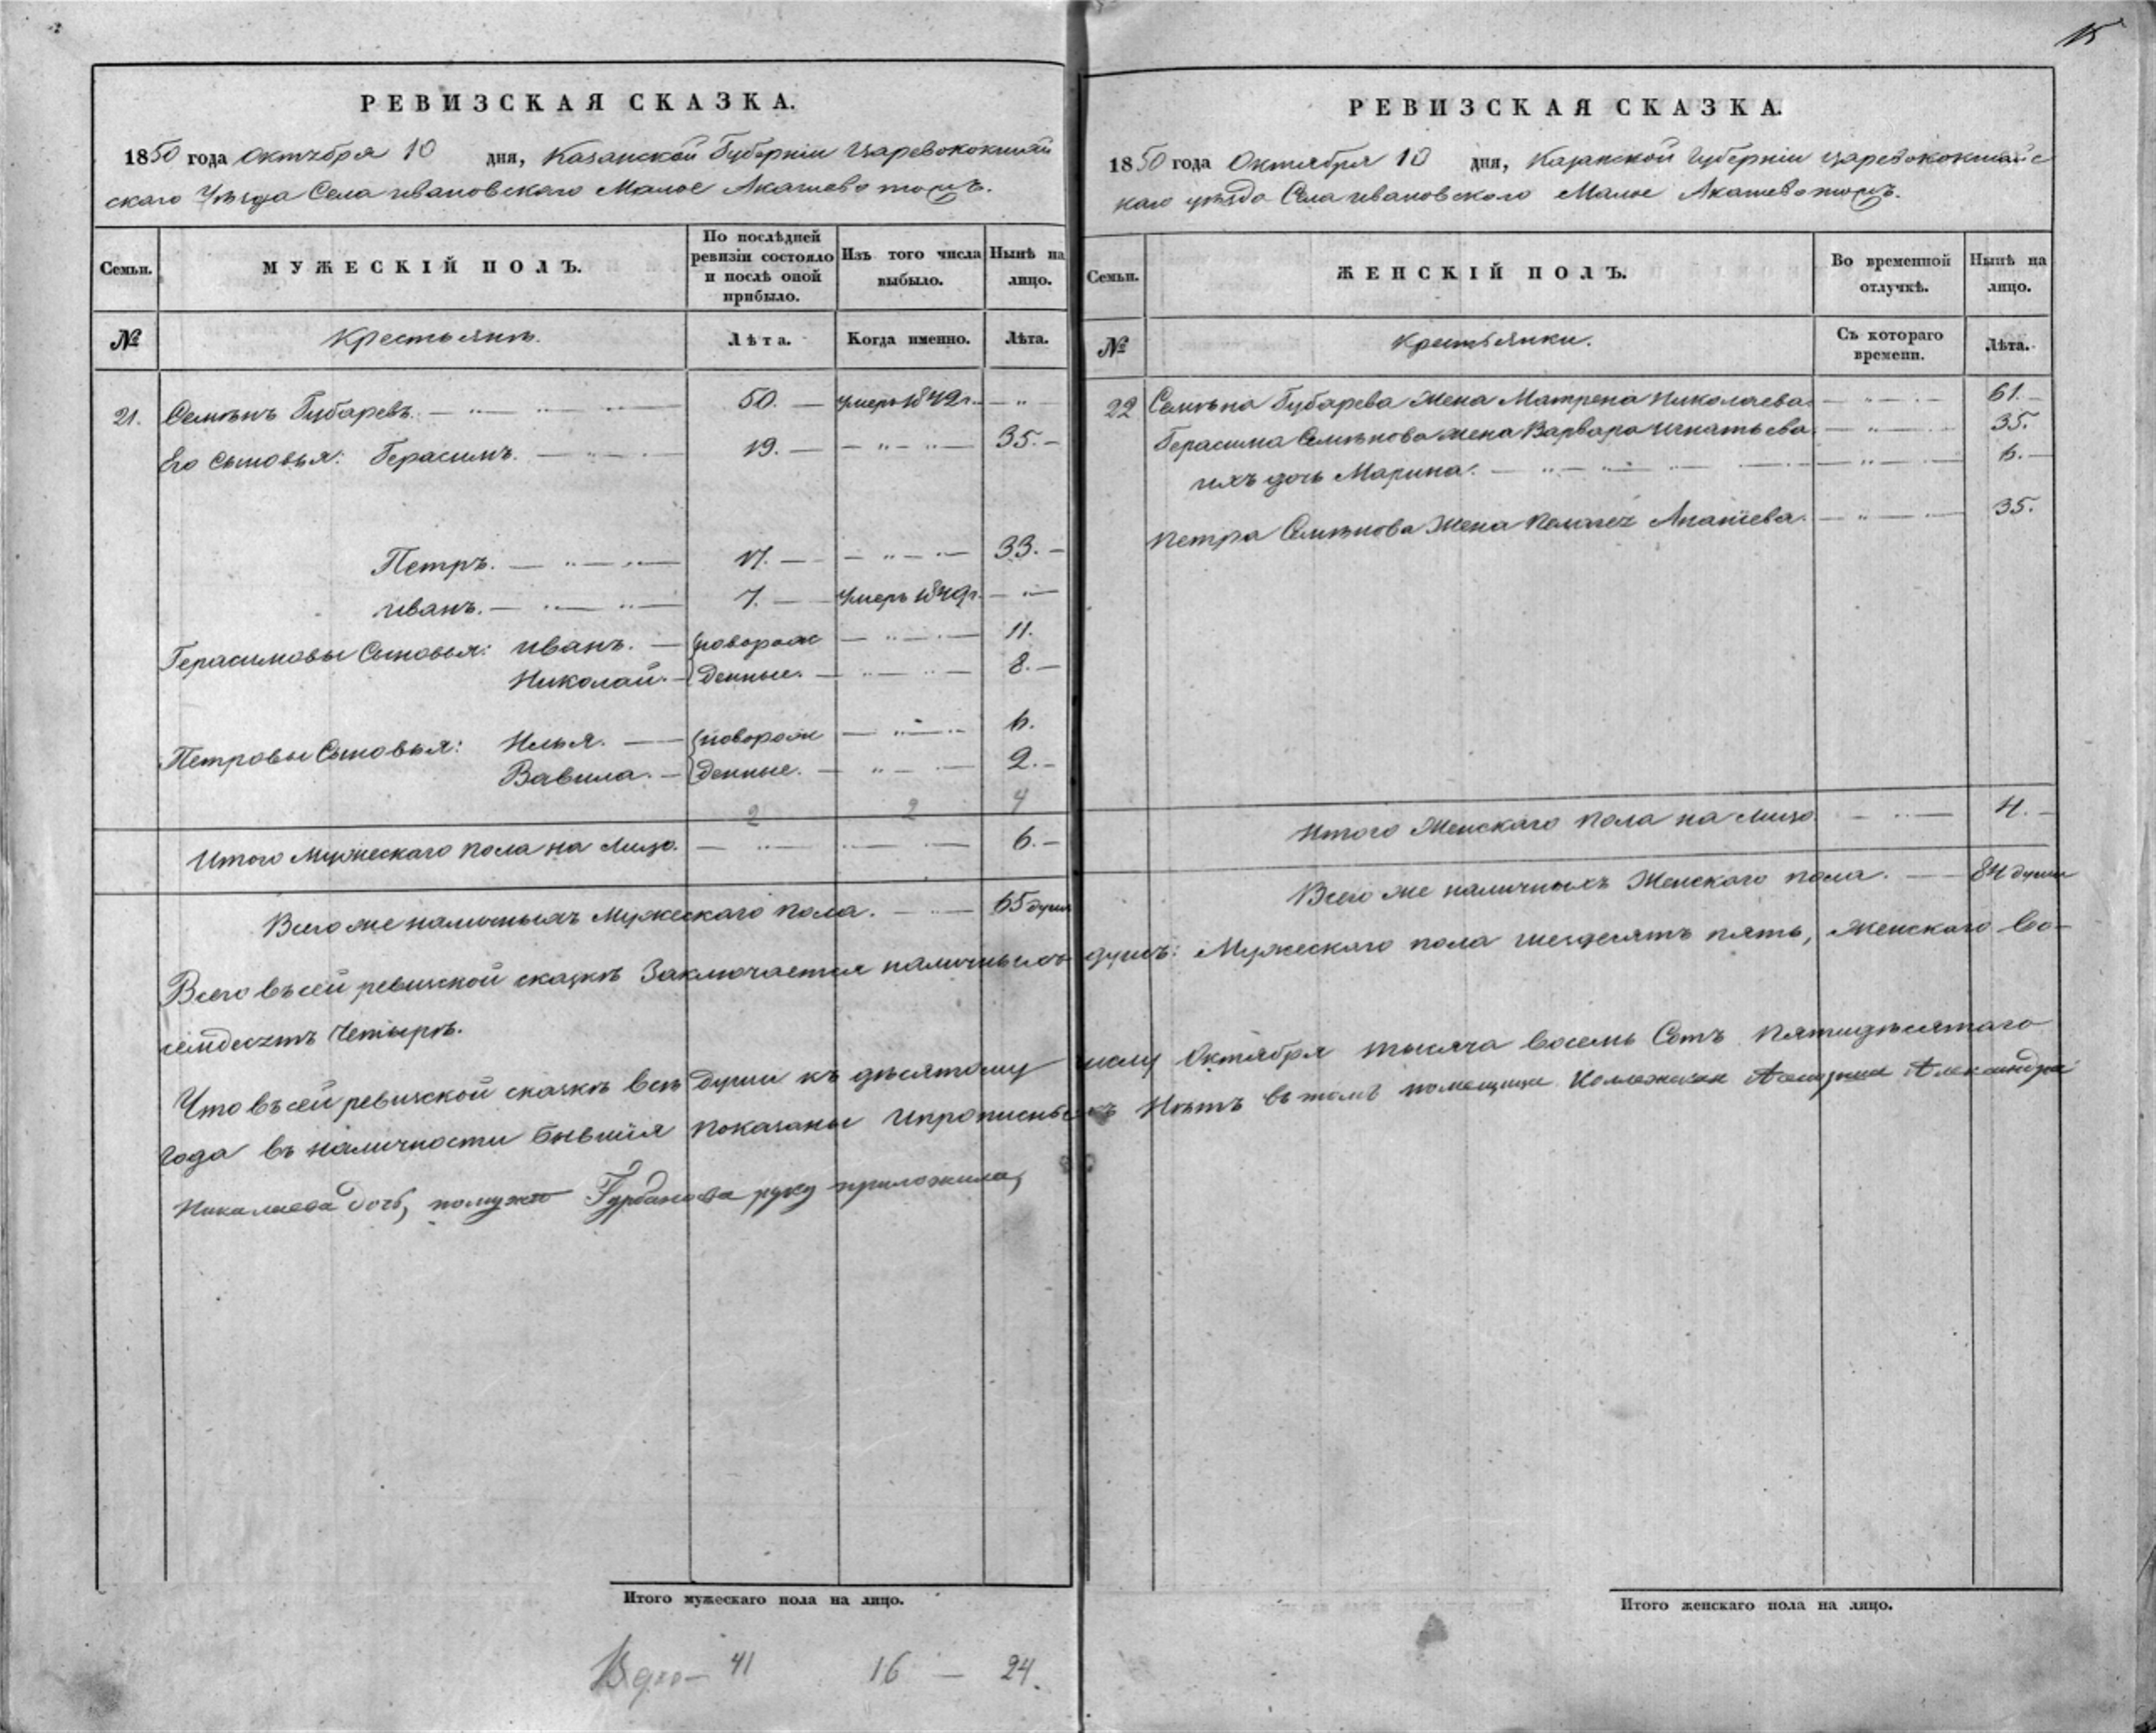 15
РЕВИЗСКАЯ СКАЗКА.
1850 года Октября 10 дня, Казанской Губернiи Царевококшай
скаго Уѣзда Села Ивановскаго Малое Акашево тожъ.
Семьи. МУЖЕСКIЙ ПОЛЪ. По послѣдней ревизiи состояло и послѣ оной прибыло. Изъ того числа выбыло. Нынѣ на лицо.
№ Крестьянъ. Лѣта. Когда именно. Лѣта.
21. Семѣнъ Губаревъ. 50. Умеръ 1842 г.
Его Сыновья: Герасимъ. 19. 35.
Петръ. 17. 33.
Иванъ. 7. Умеръ 1849 г.
Герасимовы Сыновья: Иванъ. новорож 11.
Николай. денные. 8.
Петровы Сыновья: Илья. новорож 6.
Вавила. денные. 2.
2 2 4
Итого Мужескаго пола на Лицо. 6.
Всего же наличныхъ Мужескаго пола. 65 душ
РЕВИЗСКАЯ СКАЗКА.
1850 года Октября 10 дня, Казанской Губернiи Царевококшайс
каго уѣзда Села Ивановскаго Малое Акашево тожъ.
Семьи. ЖЕНСКIЙ ПОЛЪ. Во временной отлучкѣ. Нынѣ на лицо.
№ Крестьянки. Съ котораго времени. Лѣта.
22 Семѣна Губарева Жена Матрена Николаева. 61.
Герасима Семѣнова жена Варвара Игнатьева. 35.
ихъ дочь Марина. 6.
Петра Семѣнова Жена Пелагея 35.
Итого Женскаго пола на лицо 4.
Всего же наличныхъ Женскаго пола. 84 души
Всего въ сей ревизской сказкѣ Заключается наличныхъ душъ: Мужескаго пола шездесятъ пять, Женскаго во-
семдесятъ четырѣ.
Что въ сей ревизской сказкѣ всѣ души къ дѣсятому числу Октября тысяча восемь Сотъ пятидѣсятаго
года въ наличности бывшiя показаны и прописныхъ Нѣтъ въ томъ помещица Александра
Николаева дочь, помужѣ Гурбанова руку приложила,
Итого мужескаго пола на лицо.
Итого женскаго пола на лицо.
41 16 — 24.